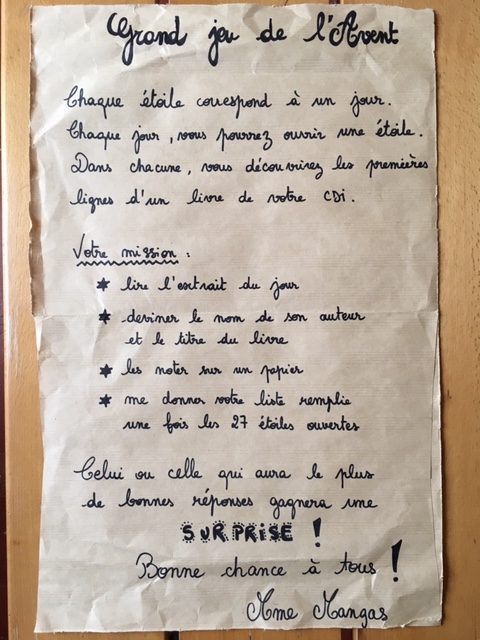 Grand jeu de l'Avent
Chaque étoile correspond à un jour.
Chaque jour, vous pourrez ouvrir une étoile.
Dans chacune, vous découvrirez les premières
lignes d'un livre de votre CDi.
Votre mission :
* lire l'extrait du jour
* deviner le nom de son auteur
et le titre du livre
* les noter sur un papier
* me donner votre liste remplie
une fois les 27 étoiles ouvertes
Celui ou celle qui aura le plus
de bonnes réponses gagnera une
SURPRISE !
Bonne chance à tous !
Mme Mangas